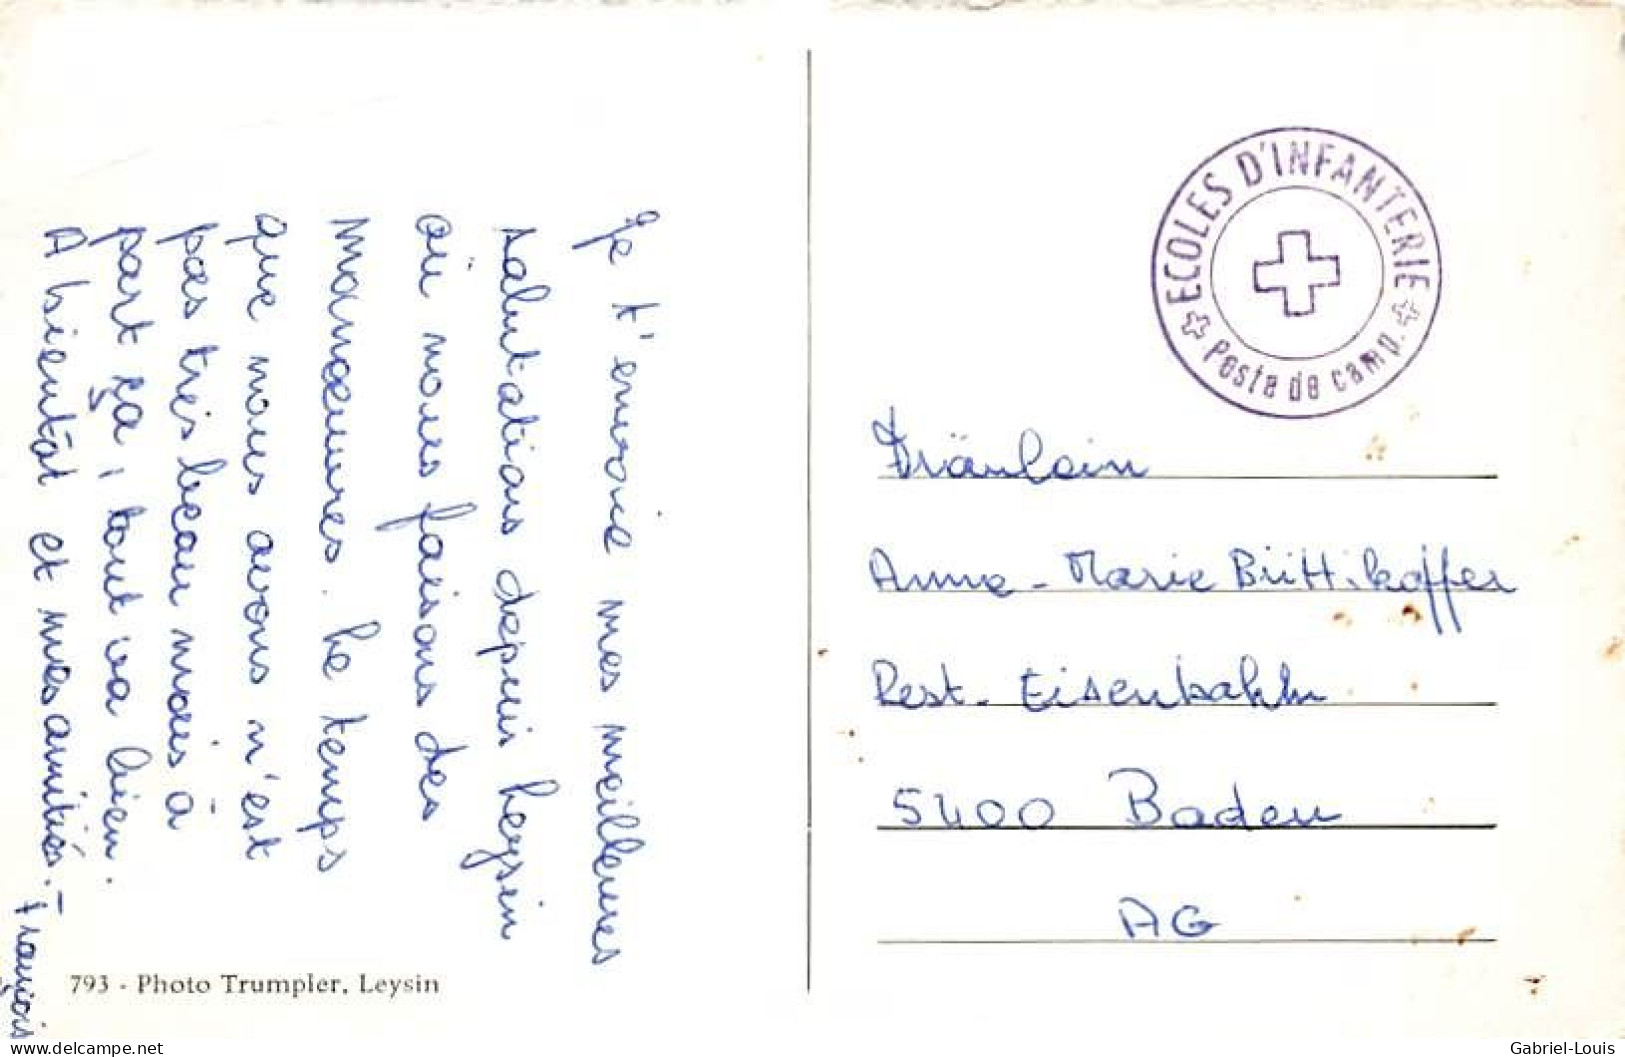 Je t'envoie mes meilleures
salutations depuis Leysin
où nous faisons des
manoeuvres. Le temps
que nous avons n'est
pas très beau mais à
part ça, tout va bien.
A bientôt et mes amitiés.-
François
793 - Photo Trumpler, Leysin
ECOLES D'INFANTERIE
Poste de camp.
Fräulein
Anne-Marie Büttikoffer
Rest. Eisenbahn
5400 Baden
AG
www.delcampe.net
Gabriel-Louis